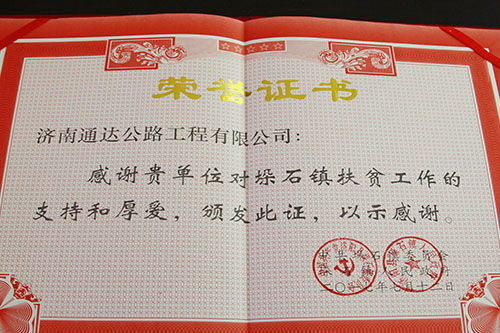 荣誉证书
济南通达公路工程有限公司：
感谢贵单位对垛石镇扶贫工作的
支持和厚爱，颁发此证，以示感谢。
人民政府
年七月十二日